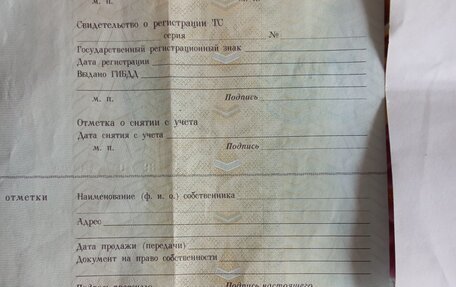 м. п. Подпись
Свидетельство о регистрации ТС
серия №
Государственный регистрационный знак
Дата регистрации
Выдано ГИБДД
м. п. Подпись
Отметка о снятии с учета
Дата снятия с учета
м. п. Подпись
отметки Наименование (ф. и. о.) собственника
Адрес
Дата продажи (передачи)
Документ на право собственности
Подпись прежнего Подпись настоящего